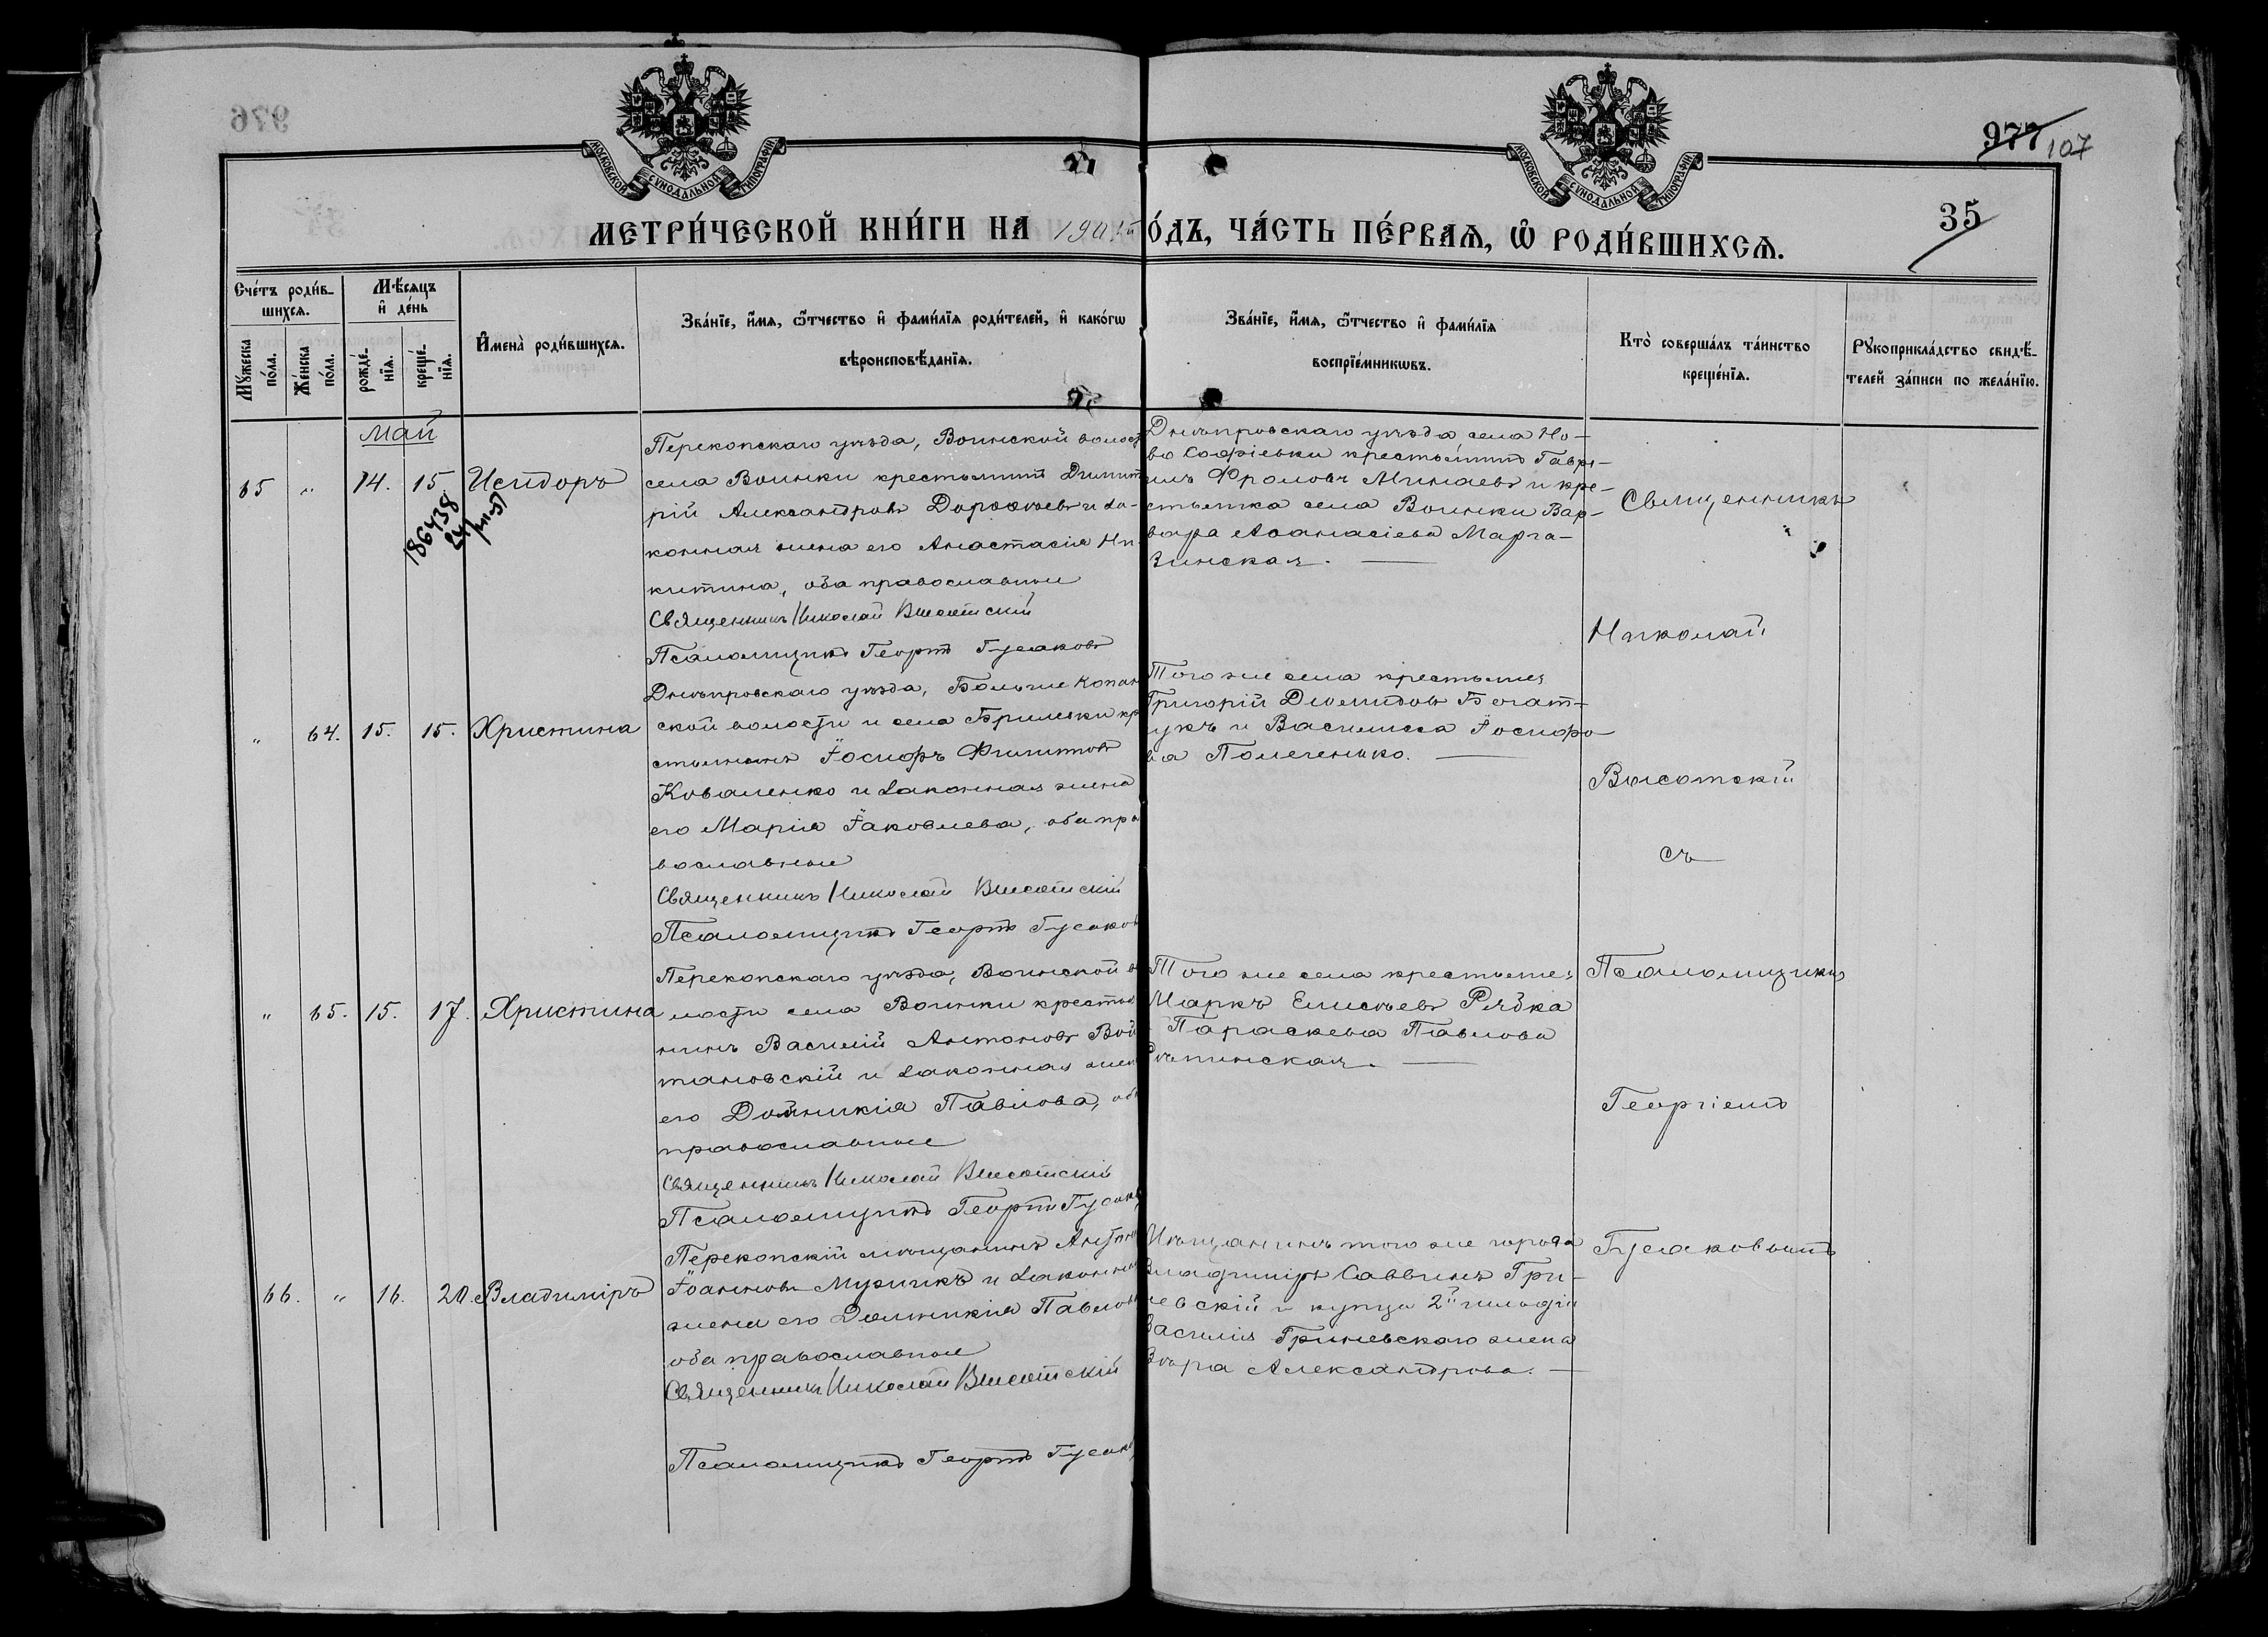 976
977
107
35
МОСКОВСКОЙ СУНОДАЛЬНОЙ ТИПОГРАФІИ
МОСКОВСКОЙ СУНОДАЛЬНОЙ ТИПОГРАФІИ
МЕТРИ́ЧЕСКОЙ КНИ́ГИ НА 190 О́ДЪ, ЧА́СТЬ ПЕ́РВАѦ, Ѽ РОДИ́ВШИХСѦ.
Сче́тъ роди́в-
шихсѧ.
Мѣ́сѧцъ
и҆ де́нь
Мꙋ́жеска по́ла.
Же́нска по́ла.
рожде́-
нїѧ.
креще́-
нїѧ.
И҆мена̀ роди́вшихсѧ.
Зва́нїе, и҆́мѧ, ѻ҆́тчество и҆ фами́лїѧ роди́телей, и҆ како́гѡ
вѣроисповѣ́данїѧ.
Зва́нїе, и҆́мѧ, ѻ҆́тчество и҆ фами́лїѧ
воспрїе́мникѡвъ.
Кто̀ соверша́лъ та́инство
креще́нїѧ.
Рꙋкоприкла́дство свидѣ́-
телей за́писи по жела́нїю.
Май
65 „ 14. 15 Исидоръ
186438
Перекопскаго уѣзда, Воинской волост
села Воинки крестьянинъ Димит
рій Александровъ Дорофѣевъ и за-
конная жена его Анастасія Ни-
китина, оба православные
Священникъ Николай Высотскій
Псаломщикъ Георгій Гусаковъ
Днѣпровскаго уѣзда села Но-
во Софіевки крестьянинъ Гаврі-
илъ Фроловъ Минаевъ и кре-
стьянка села Воинки Вар-
вара Аѳанасіева Марга-
зинская.
Священникъ
Николай
Высотскій
съ
Псаломщикомъ
Георгіемъ
Гусаковымъ
„ 64. 15. 15. Христина
Днѣпровскаго уѣзда, Больше Копан
ской волости и села Брилевки кр
стьянинъ Іосифъ Филиповъ
Коваленко и законная жена
его Марія Іаковлева, оба пра
вославные
Священникъ Николай Высотскій
Псаломщикъ Георгій Гусаков
Того же села крестьяне
Григорій Діомидовъ Богат-
укъ и Василисса Іосифо
ва Полеченько.
„ 65. 15. 17. Христина
Перекопскаго уѣзда, Воинской во
лости села Воинки крестья
нинъ Василій Антоновъ Вой
тановскій и законная жен
его Домникія Павлова, об
православные
Священникъ Николай Высотскій
Псаломщикъ Георгій Гусак
Того же села крестьяне
Маркъ Елисѣевъ Рябка
Параскева Павлова
Рѣпинская.
66. „ 16. 20. Владиміръ
Перекопскій мѣщанинъ Антон
Іоанновъ Музичкъ и законна
жена его Домникія Павлов
оба православные
Священникъ Николай Высотскій
Псаломщикъ Георгій Гусак
Мѣщанинъ того же города
Владиміръ Саввинъ Гри-
невскій и купца 2й гильдіи
Василія Гриневскаго жена
Вѣра Александрова.